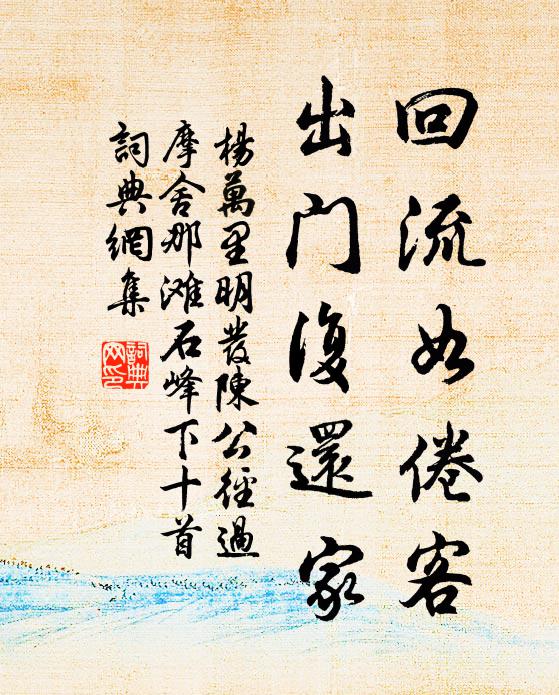 回流如倦客
出門復還家
楊萬里明發陳公徑過
摩舍那滩石峰下十首
詞典網集
詞典網印